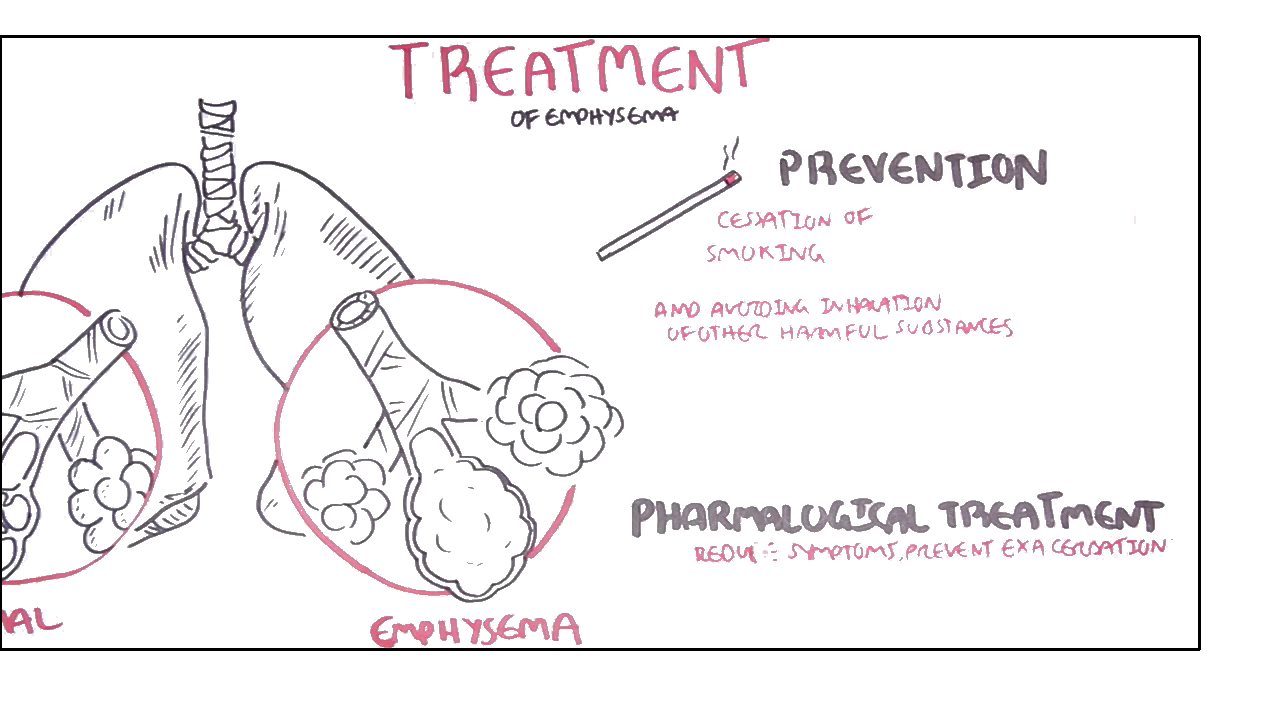 TREATMENT
OF EMPHYSEMA
PREVENTION
CESSATION OF
SMOKING
AND AVOIDING INHALATION
OF OTHER HARMFUL SUBSTANCES
PHARMALOGICAL TREATMENT
SYMPTOMS, PREVENT EXACERBATION
AL
EMPHYSEMA